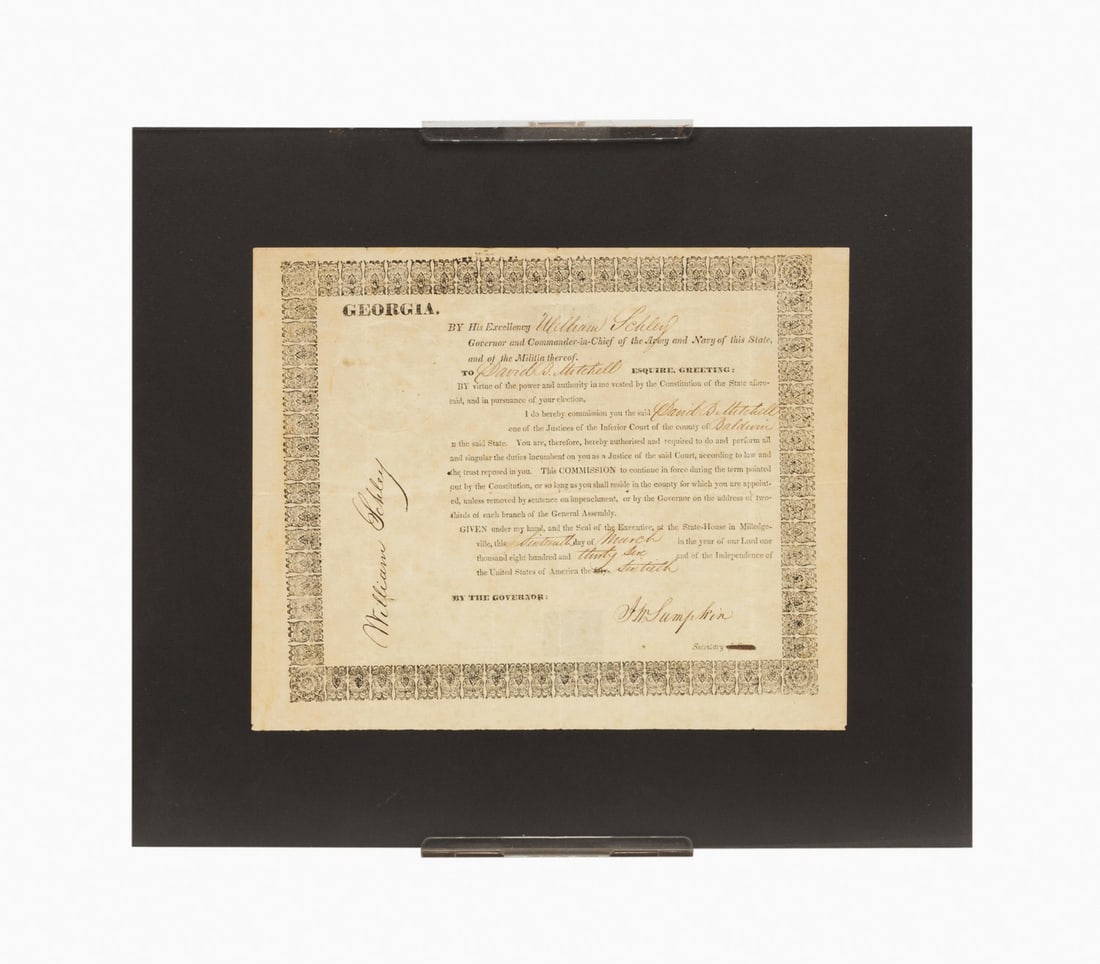 GEORGIA.
BY His Excellency William Schley
Governor and Commander-in-Chief of the Army and Navy of this State,
and of the Militia thereof.
TO David B. Mitchell ESQUIRE, GREETING:
BY virtue of the power and authority in me vested by the Constitution of the State afore-
said, and in pursuance of your election,
I do hereby commission you the said David B. Mitchell
one of the Justices of the Inferior Court of the county of Baldwin
n the said State. You are, therefore, hereby authorised and required to do and perform all
and singular the duties incumbent on you as a Justice of the said Court, according to law and
the trust reposed in you. This COMMISSION to continue in force during the term pointed
out by the Constitution, or so long as you shall reside in the county for which you are appoint-
ed, unless removed by sentence on impeachment, or by the Governor on the address of two-
thirds of each branch of the General Assembly.
GIVEN under my hand, and the Seal of the Executive, at the State-House in Milledge-
ville, this sixteenth day of March in the year of our Lord one
thousand eight hundred and thirty six and of the Independence of
the United States of America the sixtieth
BY THE GOVERNOR:
William Schley
Lumpkin
Secretary